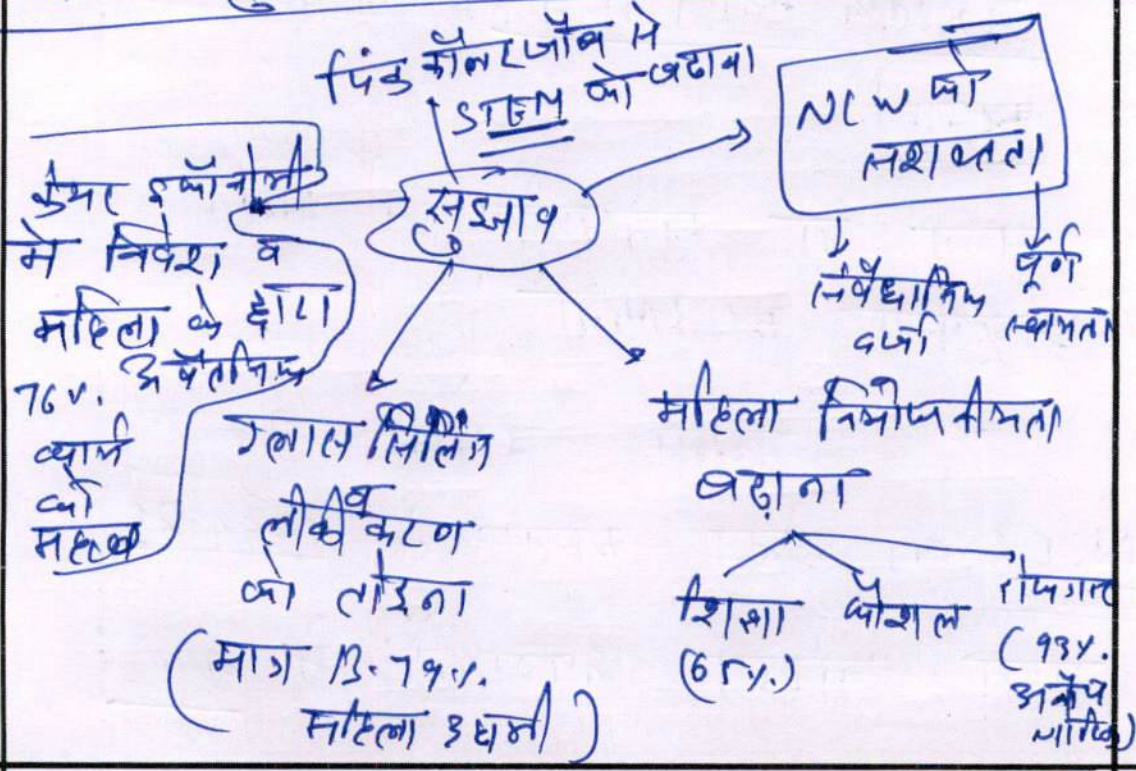 पिंक कॉलर जॉब से
STEM को बढावा
सुझाव
NCW को
सशक्तता
संवैधानिक
दर्जा
पूर्ण
स्वायत्तता
केयर इकॉनोमी
में निवेश व
महिला के द्वारा
76%. अवैतनिक
कार्य
को
महत्व
ग्लास सिलिंग
व
लीकी
को तोड़ना
(मात्र 13.79%.
महिला उद्यमी)
महिला नियोजनीयता
बढ़ाना
शिक्षा
(65%.)
कौशल
रोजगार
(93%.